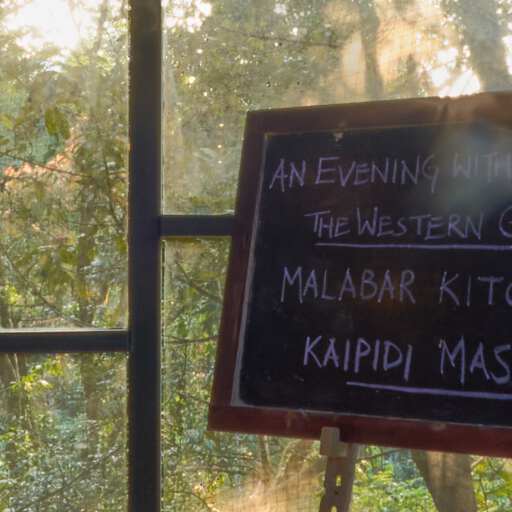 AN EVENING WITH
THE WESTERN G
MALABAR KITC
KAIPIDI MAS